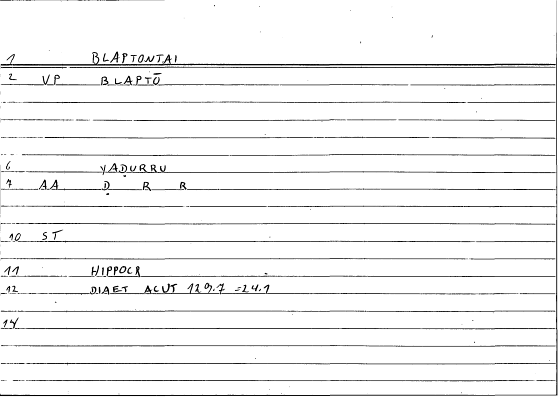 1 BLAPTONTAI
2 VP BLAPTŌ
6 YAḌURRU
7 AA Ḍ R R
10 ST
11 HIPPOCR
12 DIAET ACUT 129.7 =24.1
14